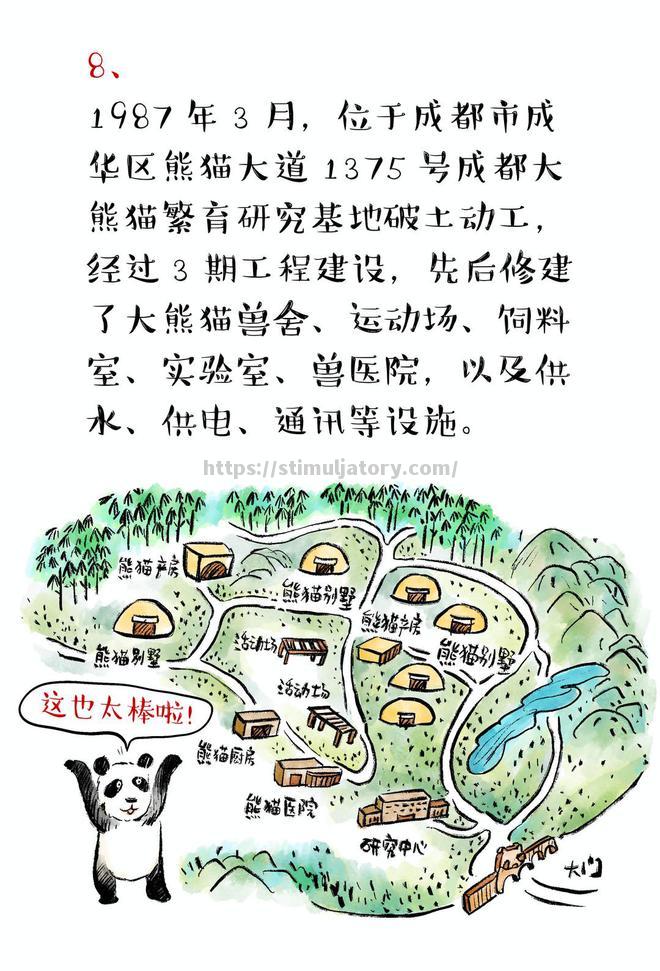 8、
1987 年 3 月，位于成都市成
华区熊猫大道 1375 号成都大
熊猫繁育研究基地破土动工，
经过 3 期工程建设，先后修建
了大熊猫兽舍、运动场、饲料
室、实验室、兽医院，以及供
水、供电、通讯等设施。
https://stimuljatory.com/
熊猫产房
熊猫别墅
熊猫产房
熊猫别墅
活动场
熊猫别墅
活动场
这也太棒啦!
熊猫厨房
熊猫医院
研究中心
大门